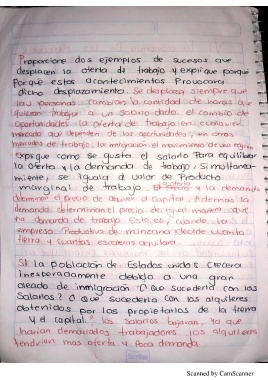 Proporcione dos ejemplos de sucesos que
desplacen la oferta de trabajo y explique porque
Porque estos acontecimientos Provocaran
dicho desplazamiento. Se desplaza siempre que
las personas cambian la cantidad de horas que
quieran trabajar a un salario dado. el cambio de
oportunidades: la oferta de trabajo en cualquier
mercado que dependen de las oportunidades, en otros
mercados de trabajo, la migración el movimiento de una región
Explique como se ajusta el salario Para equilibrar
la oferta y la demanda de trabajo. Simultanea-
miente, se iguala al valor de Producto
marginal de trabajo. la oferta y la demanda
determinan el precio de alquiler del Capital. Ademas la
demanda determinan el precio de igual manera que
la demanda de trabajo. Esto es, cuando la
empresa Productiva de manzana decide cuanta
tierra y cuantas escaleras alquilara.
Si la población de Estados unidos creciera
inesperadamente debido a una gran
oleado de inmigración ¿Que sucedería con los
Salarios? ¿O que sucedería con los alquileres
obtenidos por los propietarios de la tierra
y el capital? los salarios bajaran, ya que
habrian demasiados trabajadores. los alquileres
tendrian mas oferta y poca demanda.
Scribe
Scanned by CamScanner